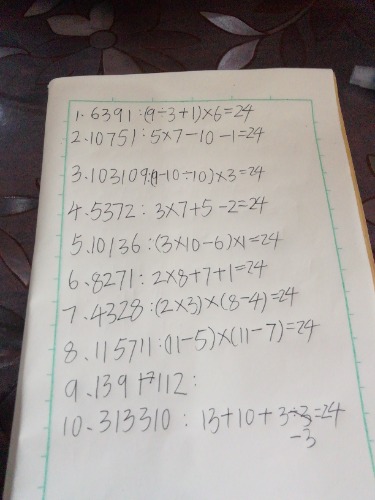 1.6391:(9÷3+1)×6=24
2.10751:5×7-10-1=24
3.103109:(9-10÷10)×3=24
4.5372:3×7+5-2=24
5.10136:(3×10-6)×1=24
6.8271:2×8+7+1=24
7.4328:(2×3)×(8-4)=24
8.115711:(11-5)×(11-7)=24
9.139112:
10.313310:13+10+3÷3=24
-3